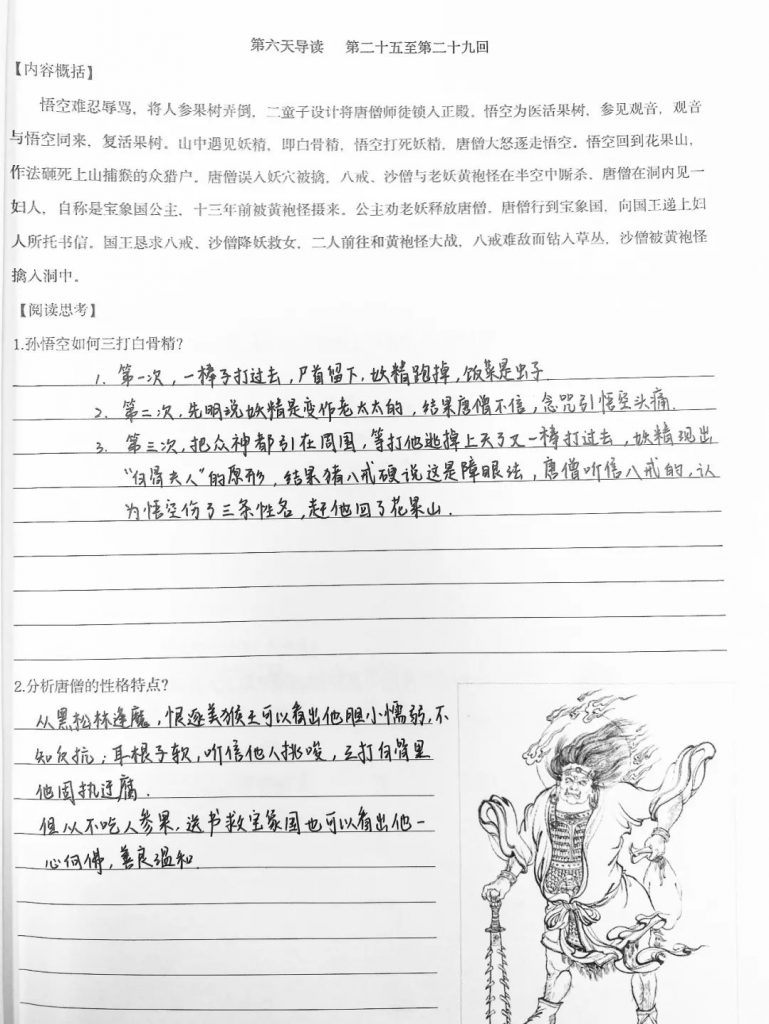 第六天导读 第二十五至第二十九回
【内容概括】
悟空难忍辱骂，将人参果树弄倒，二童子设计将唐僧师徒锁入正殿。悟空为医活果树，参见观音，观音
与悟空同来，复活果树。山中遇见妖精，即白骨精，悟空打死妖精，唐僧大怒逐走悟空。悟空回到花果山，
作法砸死上山捕猴的众猎户。唐僧误入妖穴被擒，八戒、沙僧与老妖黄袍怪在半空中厮杀、唐僧在洞内见一
妇人，自称是宝象国公主，十三年前被黄袍怪摄来。公主劝老妖释放唐僧。唐僧行到宝象国，向国王递上妇
人所托书信。国王恳求八戒、沙僧降妖救女，二人前往和黄袍怪大战，八戒难敌而钻入草丛，沙僧被黄袍怪
擒入洞中。
【阅读思考】
1.孙悟空如何三打白骨精？
1. 第一次，一棒子打过去，尸首留下，妖精跑掉，饭菜是虫子
2. 第二次，先明说妖精是变作老太太的，结果唐僧不信，念咒引悟空头痛.
3. 第三次，把众神都引在周围，等打他逃掉上天了又一棒打过去，妖精现出
“白骨夫人”的原形，结果猪八戒硬说这是障眼法，唐僧听信八戒的，认
为悟空伤了三条性名，赶他回了花果山.
2.分析唐僧的性格特点？
从黑松林逢魔，恨逐美猴王可以看出他胆小懦弱，不
知反抗；耳根子软，听信他人挑唆，三打白骨里
他固执迂腐.
但从不吃人参果，送书救宝象国也可以看出他一
心向佛，善良温和.